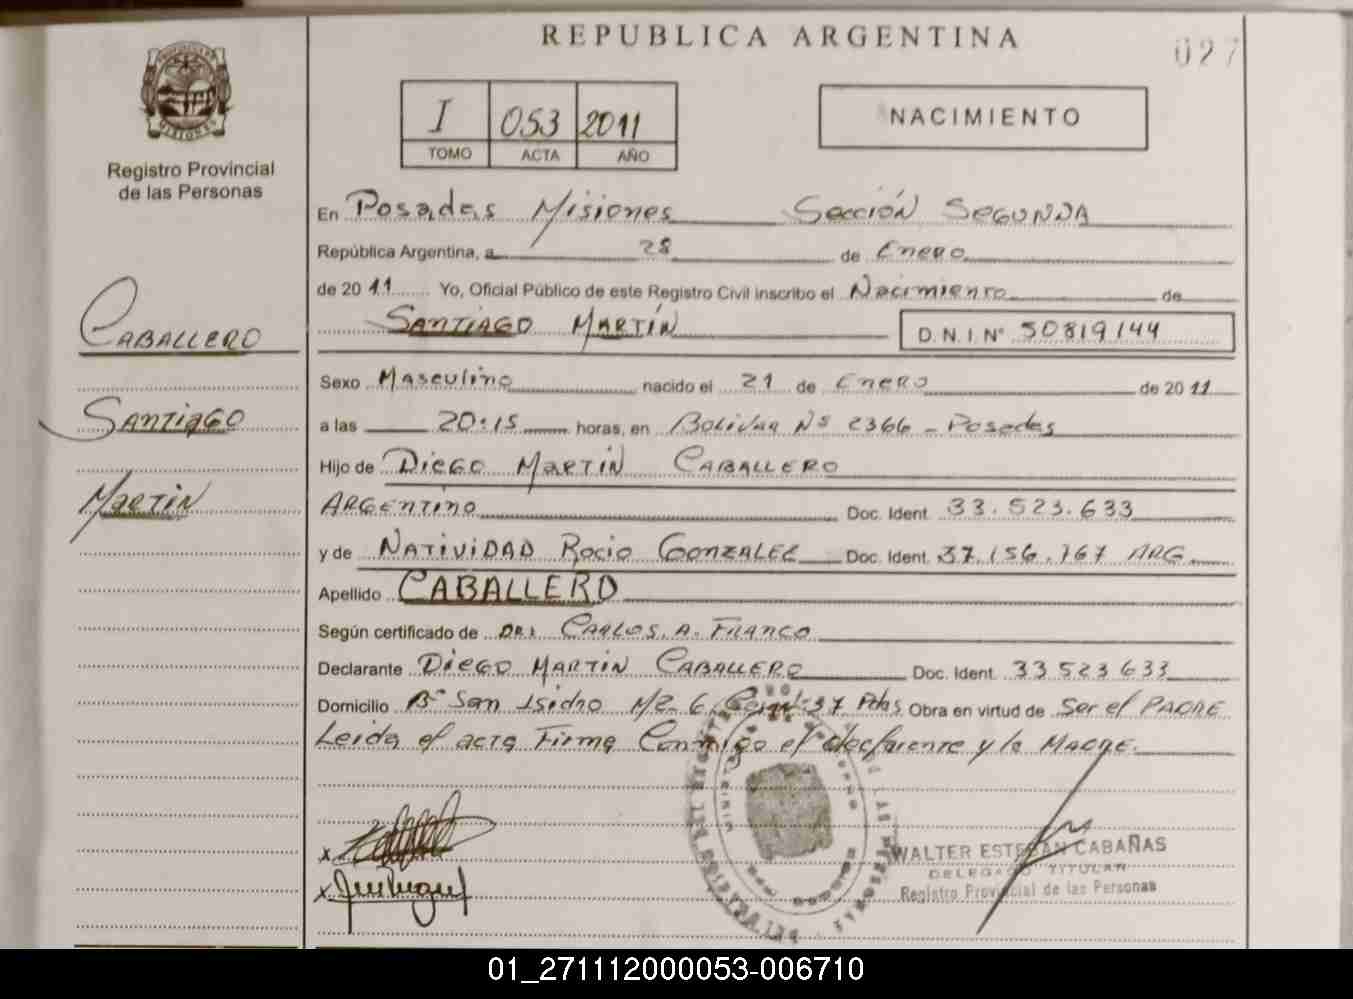 REPUBLICA ARGENTINA
027
MISIONES
Registro Provincial
de las Personas
I 053 2011
TOMO ACTA AÑO
NACIMIENTO
En Posadas Misiones Sección Segunda
República Argentina, a 28 de Enero
de 2011 Yo, Oficial Público de este Registro Civil inscribo el Nacimiento de
Santiago Martín D.N.I. Nº 50819144
Caballero
Santiago
Martín
Sexo Masculino nacido el 21 de Enero de 2011
a las 20:15 horas, en Bolivar Nº 2366 - Posadas
Hijo de Diego Martin Caballero
Argentino Doc. Ident. 33.523.633
y de Natividad Rocio Gonzalez Doc. Ident. 37.156.767 ARG.
Apellido CABALLERO
Según certificado de DR. Carlos. A. Franco
Declarante Diego Martin Caballero Doc. Ident. 33523633
Domicilio Bº San Isidro Mz. 6 37 Pdas. Obra en virtud de Ser el Padre
Leida el acta Firma Conmigo el declarente y la Madre.
x
x
WALTER ESTEBAN CABAÑAS
DELEGADO TITULAR
Registro Provincial de las Personas
01_271112000053-006710